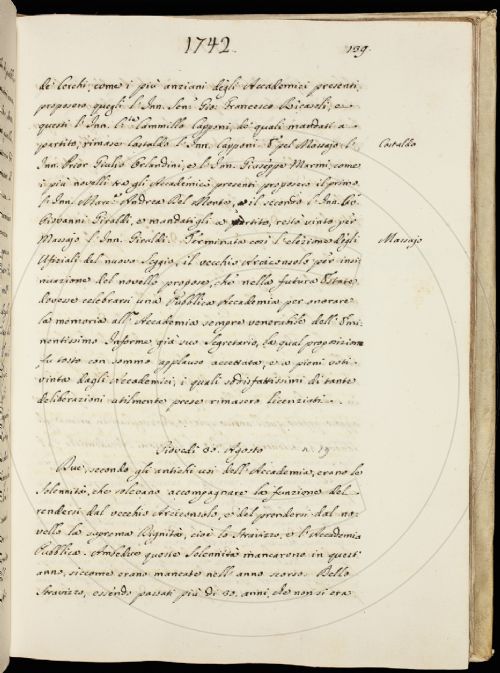 1742.
139.
de' Cerchi, come i più anziani degli Accademici presenti,
proposero quegli l'Inn. Sen.r Gio. Francesco Ricasoli, e
questi l'Inn. Cammillo Capponi, de' quali mandati a
partito, rimase Castaldo l'Inn. Capponi. E pel Massajo l'
Castaldo
Inn. Prior Giulio Orlandini, e l'Inn. Giuseppe Marmi, come
i più novelli tra gli Accademici presenti proposero il primo
l'Inn. Marc. Andrea Del Monte, e il secondo l'Inn.
Giovanni Giraldi, e mandatigli a partito, restò vinto per
Massajo l'Inn. Giraldi. Terminata così l'elezione degli
Massajo
Ufiziali del nuovo seggio, il vecchio Arciconsolo per insi-
nuazione del novello propose, che nella futura Estate
dovesse celebrarsi una Pubblica Accademia per onorare
la memoria all' Accademia sempre venerabile dell' Emi-
nentissimo Inferme già suo Segretario, la qual proposizione
fu tosto con sommo applauso accettata, e a pieni voti
vinta dagli Accademici, i quali soddisfattissimi di tante
deliberazioni utilmente prese rimasero licenziati.
Giovedì 30. Agosto
Due, secondo gli antichi usi dell' Accademia, erano le
Solennità, che solevano accompagnare la funzione del
rendersi dal vecchio Arciconsolo, e del prendersi dal no-
vello la suprema Dignità, cioè lo Stravizzo, e l'Accademia
Pubblica. Amedue queste Solennità mancarono in quest'
anno, siccome erano mancate nell' anno scorso. Dello
Stravizzo, essendo passati più di 30. anni, che non si era